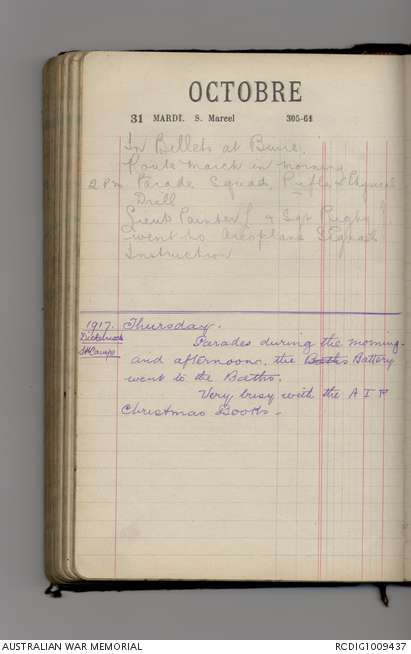 OCTOBRE
31 MARDI. S. Marcel 305-61
In Billets at Buire.
Route march in morning
2 pm Parade Squad, Rifle & Physical
Drill
Lieut Painter & Sgt Rigby
went to Aeroplane Signals
Instruction
1917. Thursday.
Dickebusch Parades during the morning
St Camp and afternoon. the Baths Battery
went to the Baths.
Very busy with the A I F
Christmas Books -
AUSTRALIAN WAR MEMORIAL RCDIG1009437